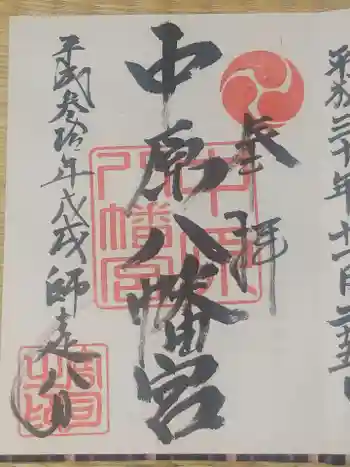 平成三十年十一月二十五日
奉拝
中原八幡宮
中原八幡宮
平成参拾年戊戌師走八日